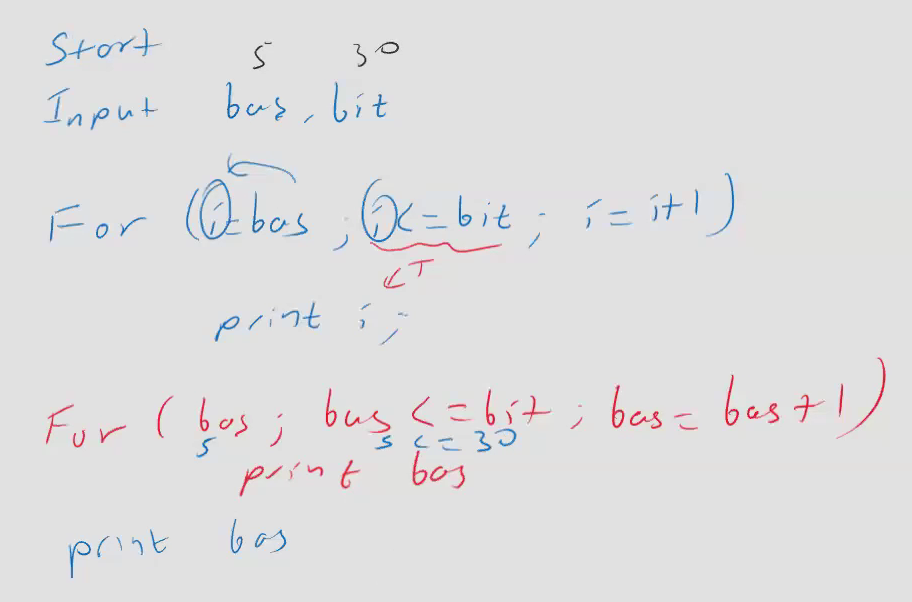 Start 5 30
Input bas, bit
For (i=bas ; i<=bit ; i=i+1)
T
print i;
For (bas; bas <=bit ; bas= bas+1)
5 5 <= 30
print bas
print bas